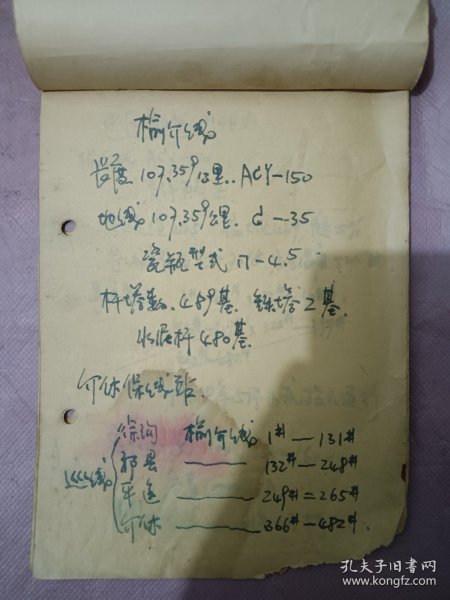 榆介线
长度 107.359公里. ACY-150
地线 107.359公里. d-35
瓷瓶型式 П-4.5
杆塔数. 489基. 铁塔2基.
水泥杆480基.
介休保线站.
徐沟 榆介线 1#—131#
祁县 —— 132#—248#
平遥 —— 249#=265#
介休 —— 366#—482#.
孔夫子旧书网
www.kongfz.com